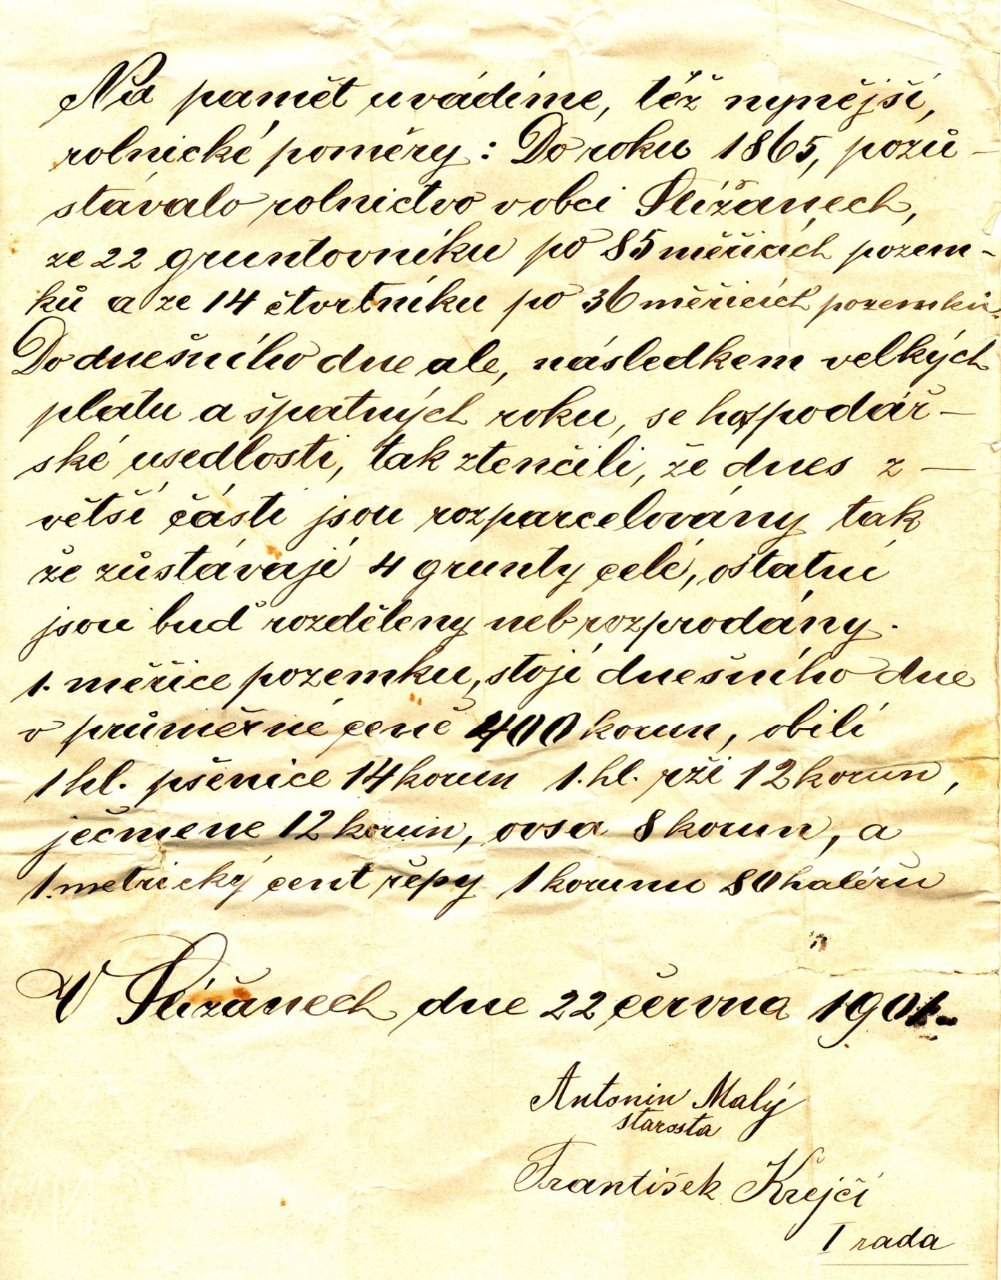 Na pamět uvádíme, též nynější,
rolnické poměry: Do roku 1865, pozů-
stávalo rolnictvo v obci Slížanech,
ze 22 gruntovníku po 85 měřicích pozem-
ků a ze 14 čtvrtníku po 36 měřicích pozemků.
Do dnešního dne ale, následkem velkých
platu a špatných roku, se hospodář-
ské usedlosti, tak ztenčili, že dnes z-
větší části jsou rozparcelovány tak
že zůstávají 4 grunty celé, ostatní
jsou buď rozděleny neb rozprodány.
1. měřice pozemku, stojí dnešního dne
v průměrné ceně 400 korun, obilí
1 hl. pšenice 14 korun 1. hl. rži 12 korun,
ječmene 12 korun, ovsa 8 korun, a
1. metrický cent řepy 1 korunu 80 haléřu
V Slížanech dne 22 června 1901.
Antonin Malý
starosta
František Krejčí
I rada